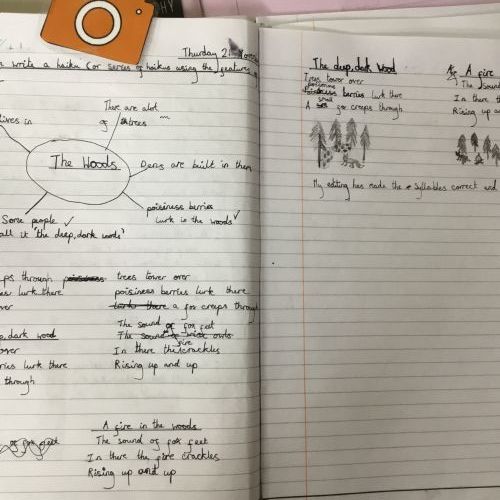 Thursday 21
write a haiku (or series of haikus using the features
There are alot
of trees
lives in
The Woods
Dens are built in them
poisiness berries
lurk in the woods
Some people
all it "the deep, dark woods"
ps through
trees tower over
es lurk there
poisiness berries lurk there
over
lurk there a fox creeps through
The sound of fox feet
The sound owls
p, dark wood
fire
over
In there the crackles
ries lurk there
Rising up and up
through
A fire in the woods
of fox feet
The sound of fox feet
In there the fire crackles
Rising up and up
The deep, dark Wood
Trees tower over
poisonous
berries lurk there
small
A fox creeps through
My editing has made the syllables correct and
A fire
The sound
In there th
Rising up an